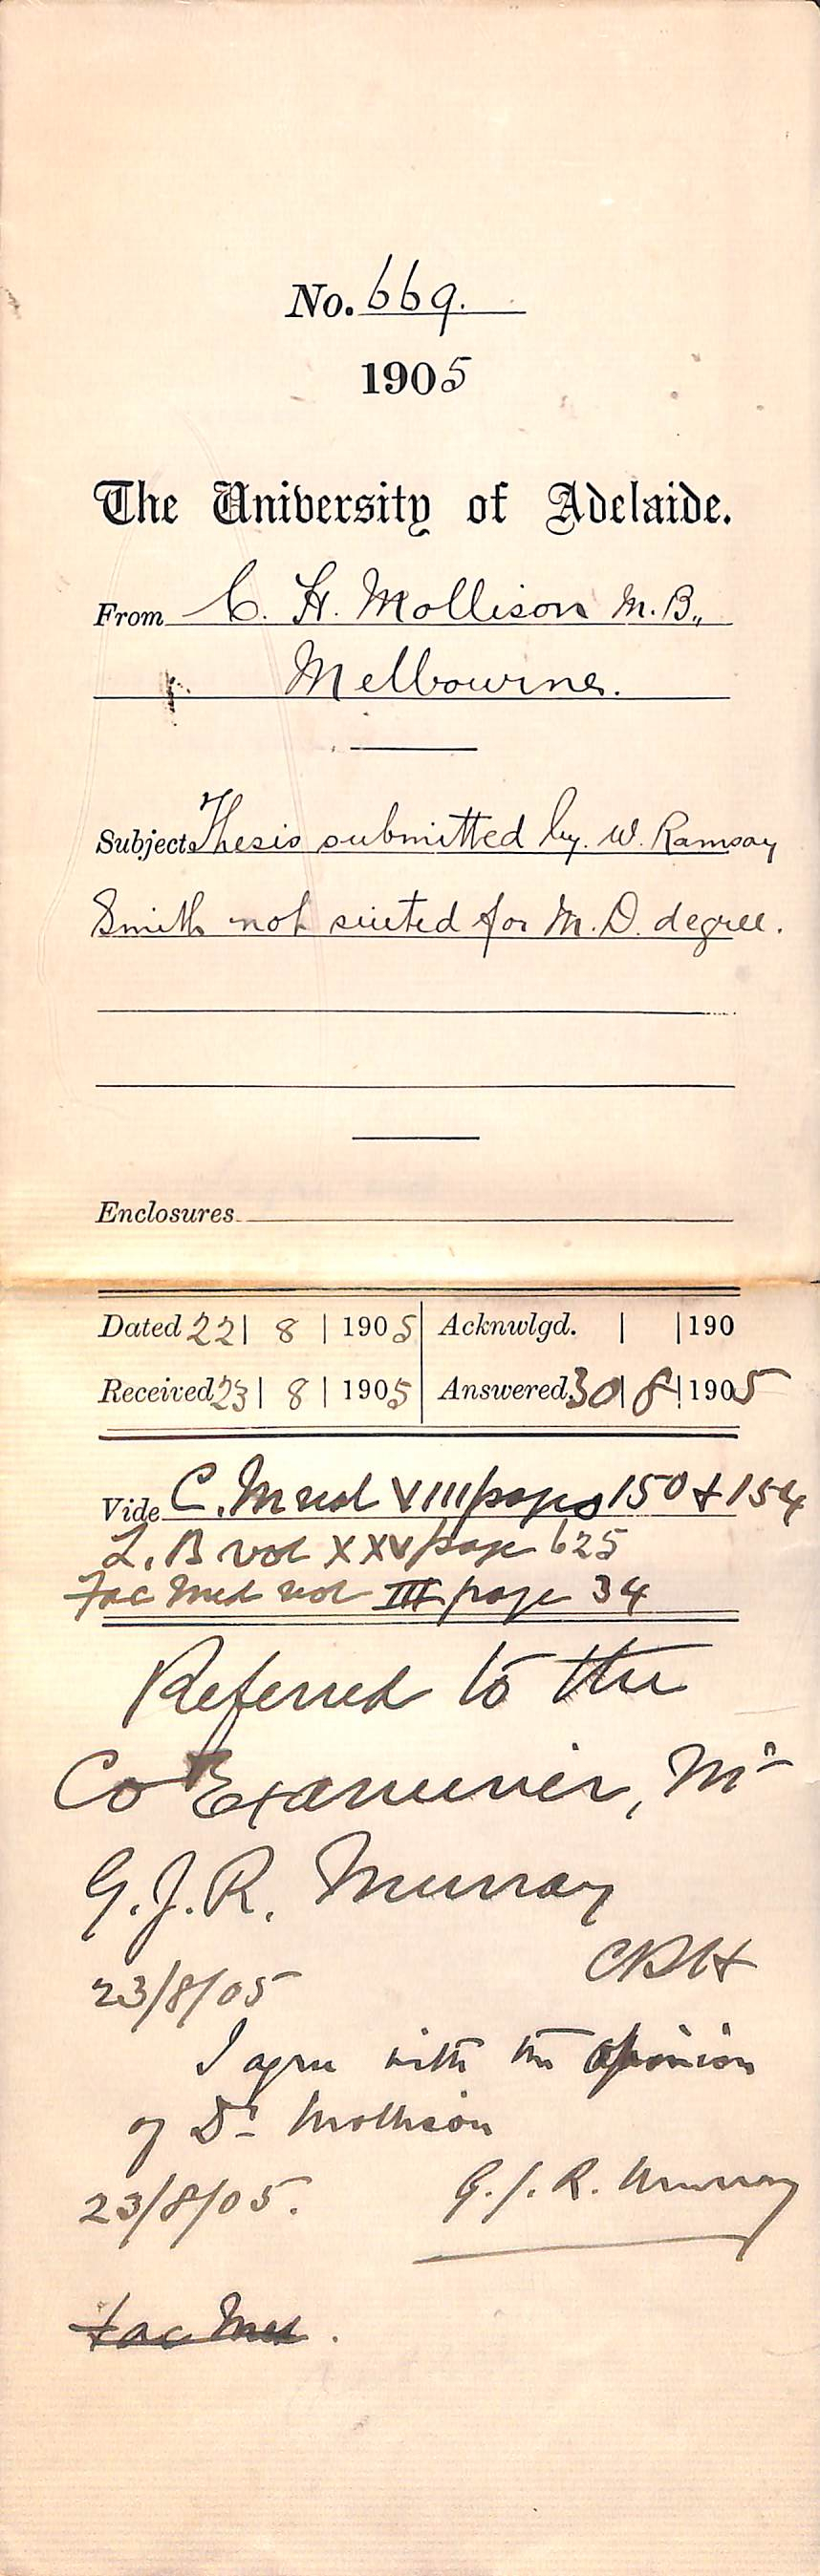 No. 669.
1905
The University of Adelaide.
From C. H. Mollison M.B.,
Melbourne.
Subject Thesis submitted by W. Ramsay
Smith not suited for M.D. degree.
Enclosures
Dated 22 | 8 | 1905 Acknwlgd. | | 190
Received 23 | 8 | 1905 Answered 30 | 8 | 1905
Vide C. M vol VIII pages 150 & 154
L. B vol XXV page 625
Fac Med vol III page 34
Referred to the
Co Examiner, Mr
G. J. R. Murray
CBH
23/8/05
I agree with the opinion
of Dr Mollison
23/8/05. G. J. R. Murray
Fac Med.